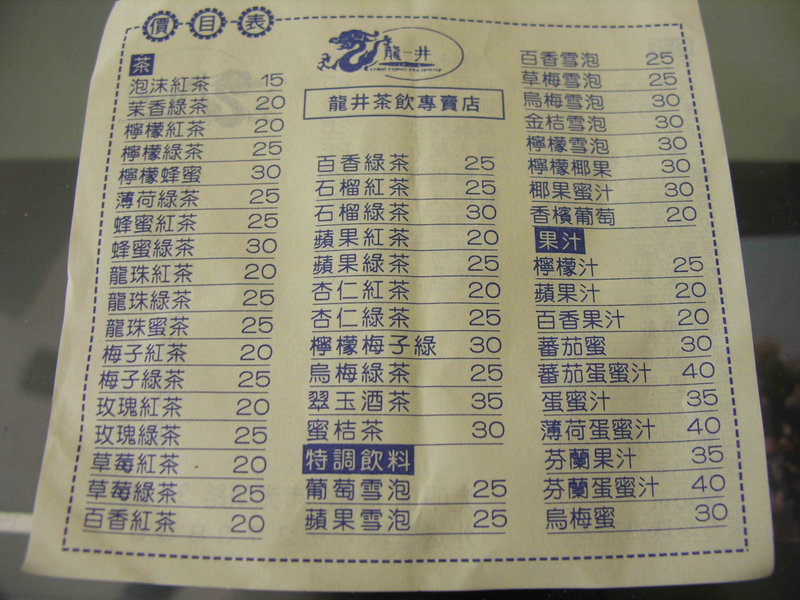 價目表
茶
泡沫紅茶 15
茉香綠茶 20
檸檬紅茶 20
檸檬綠茶 25
檸檬蜂蜜 30
薄荷綠茶 25
蜂蜜紅茶 25
蜂蜜綠茶 30
龍珠紅茶 20
龍珠綠茶 25
龍珠蜜茶 25
梅子紅茶 20
梅子綠茶 25
玫瑰紅茶 20
玫瑰綠茶 25
草莓紅茶 20
草莓綠茶 25
百香紅茶 20
龍井
龍井茶飲專賣店
百香綠茶 25
石榴紅茶 25
石榴綠茶 30
蘋果紅茶 20
蘋果綠茶 25
杏仁紅茶 20
杏仁綠茶 25
檸檬梅子綠 30
烏梅綠茶 25
翠玉酒茶 35
蜜桔茶 30
特調飲料
葡萄雪泡 25
蘋果雪泡 25
百香雪泡 25
草莓雪泡 25
烏梅雪泡 30
金桔雪泡 30
檸檬雪泡 30
檸檬椰果 30
椰果蜜汁 30
香檳葡萄 20
果汁
檸檬汁 25
蘋果汁 20
百香果汁 20
蕃茄蜜 30
蕃茄蛋蜜汁 40
蛋蜜汁 35
薄荷蛋蜜汁 40
芬蘭果汁 35
芬蘭蛋蜜汁 40
烏梅蜜 30